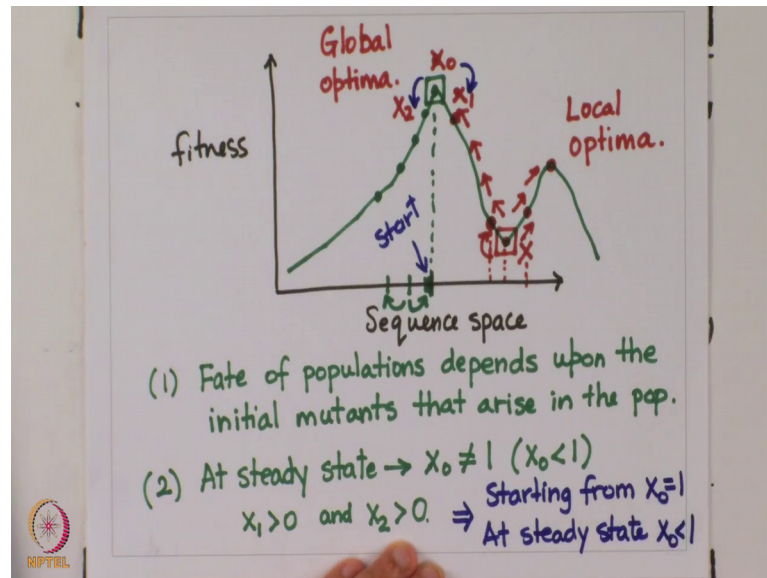 Global
optima.
x₀
x₂
x₁
Local
optima.
fitness
start
x
Sequence space
(1) Fate of populations depends upon the
initial mutants that arise in the pop.
(2) At steady state → x₀ ≠ 1 (x₀<1)
x₁>0 and x₂>0. ⇒ Starting from x₀=1
At steady state x₀<1
NPTEL